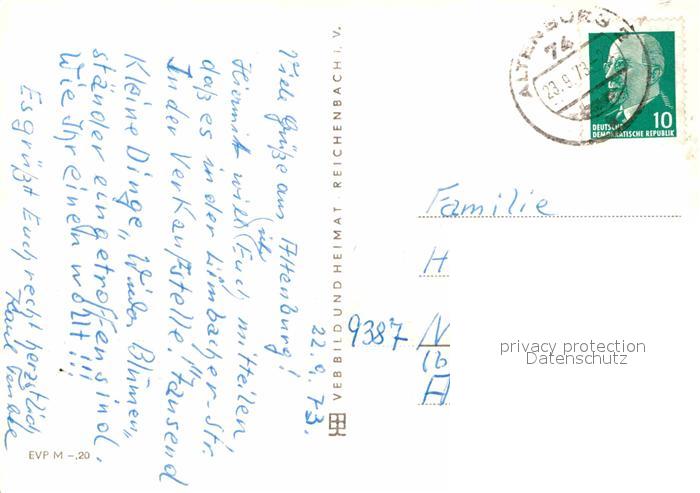 22.9.73.
Viele Grüße aus Altenburg!
Hiermit will (ich) Euch mitteilen,
daß es in der Limbacher-Str.
In der Verkaufstelle. "Tausend
Kleine Dinge," Blumen,,
ständer eingetroffen sind.
Wie Ihr einen wollt!!!
Es grüßt Euch recht herzlich
VEB BILD UND HEIMAT · REICHENBACH I. V.
EVP M –,20
ALTENBURG
74
23.9.73
10
DEUTSCHE
DEMOKRATISCHE REPUBLIK
Familie
H
9387 N
(b
A
privacy protection
Datenschutz